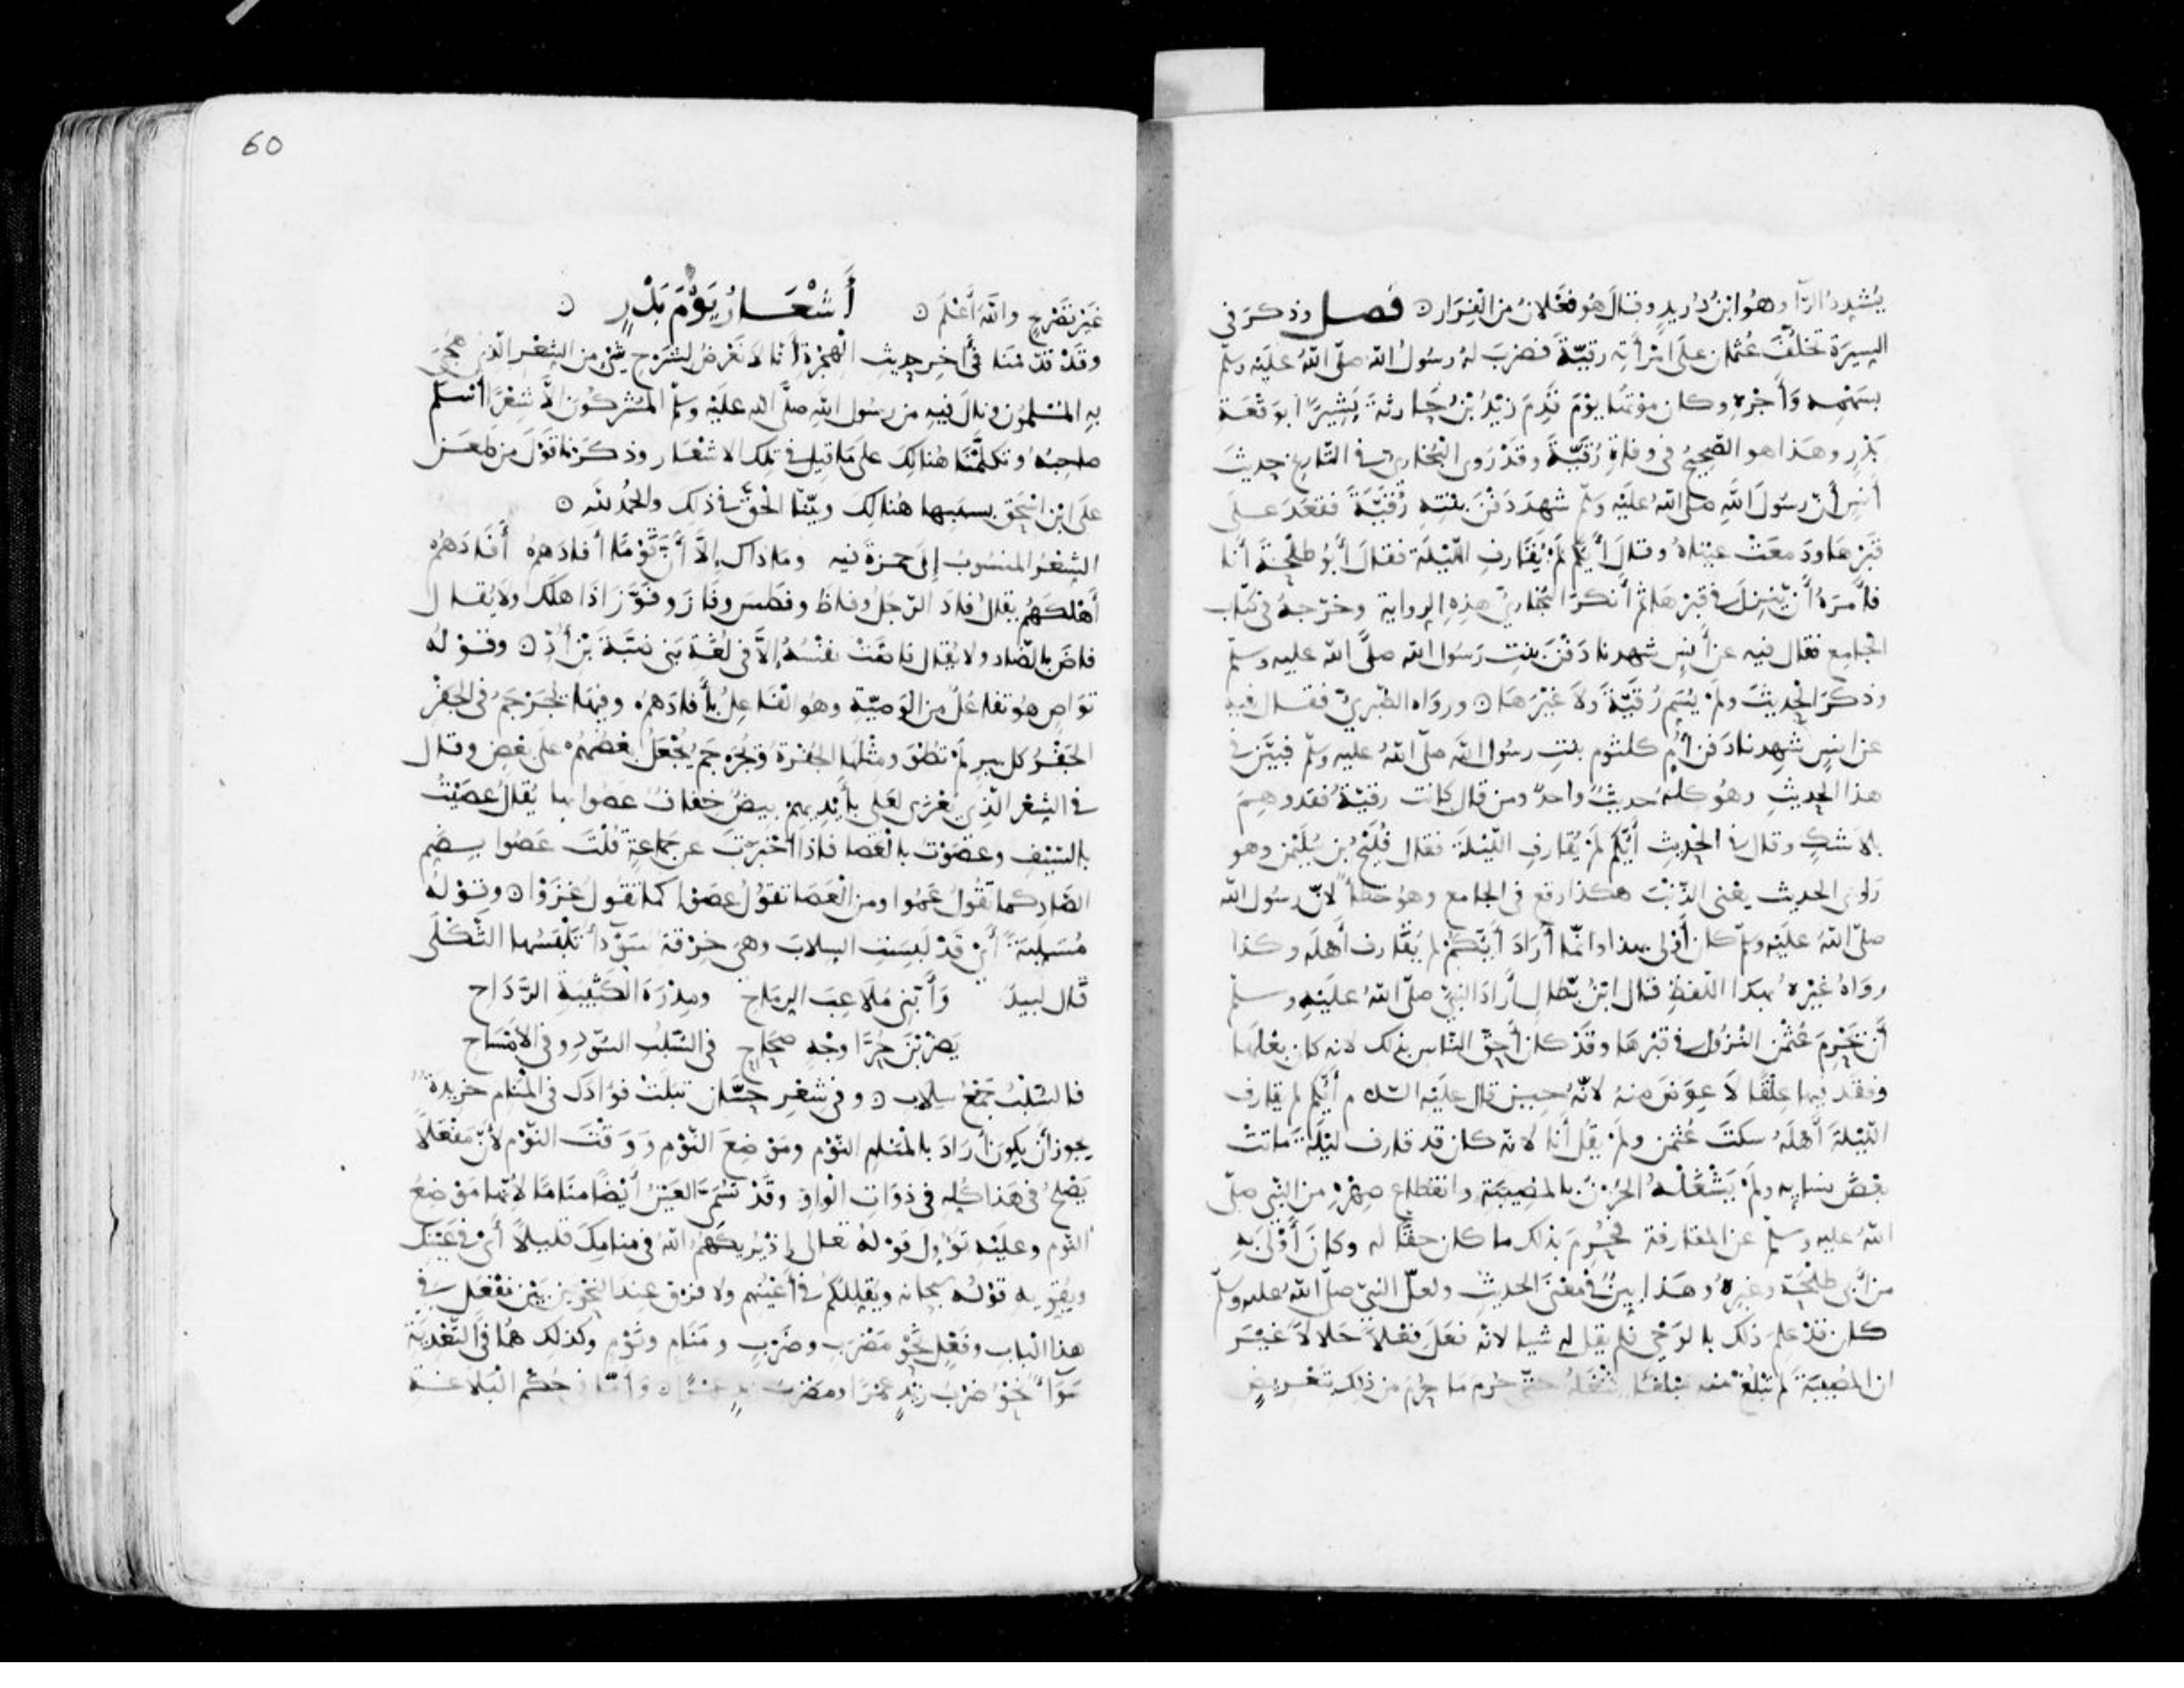 يُشدِّدُ الرّآ وهُو ابنُ دُرَيدٍ وقالَ هُو فَعْلانُ من الفِرَار ۞ فصل وذكرَ في
السِيرَة تخلُّفَ عُثمان علَى امْرأتِه رقيّةَ فضرَبَ لهُ رسُولُ الله صلّى اللهُ علَيْه وسلّم
بسَهْمه وَأَجْرِهِ وكان موْتُهَا يوْمَ قَدِمَ زيْدُ بْنُ حَارِثةَ بَشِيرًا بوَقْعَة
بَدْرٍ وهَذا هو الصّحيحُ في وفاةِ رُقَيَّةَ وقَدْ رَوى البُخاريّ في التّاريخ حديثَ
أَنَسٍ أنّ رسُولَ الله صلى اللهُ علَيْه وَسَلّم شَهِدَ دَفْنَ بِنْتِهِ رُقَيَّةَ فقَعَدَ عَلَى
قَبْرِهَا ودَمعَتْ عيْنَاهُ وقالَ أيّكُم لَمْ يُقَارفِ اللّيْلَة فقالَ أَبُو طلْحَةَ أَنا
فأَمرَهُ أن يّنْزِلَ في قبْرِهَا ثم أنكرَ البُخاريُّ هذِهِ الرواية وخرّجهُ في كتاب
الجامِع فقال فيه عن أَنَسٍ شهِدنا دَفْنَ بِنتِ رَسُول الله صلَّى الله عليه وسلّم
وذكَرَ الحديثَ ولَمْ يُسَمِّ رُقَيَّةَ ولاَ غَيْرَهَا ۞ ورواه الطّبريُّ فقال فيه
عن انسٍ شهِدنا دَفن أُم كلثوم بنتِ رسُول الله صلّى اللهُ عليه وسلّم فبيّن في
هذا الحديثِ وهُو كلّهُ حديثٌ واحدٌ ومن قال كانت رقيّةُ فقد وهِمَ
بلا شكٍ وقال في الحَديث أيُّكُم لَمْ يُقارفِ اللّيْلَةَ فقال فُلَيْحُ بن سُلَيْمَن وهو
رَاوي الحديث يعْني الذّنْبَ هكذا وقع في الجامع وهُو خطأٌ لانّ رسُول الله
صلّى اللهُ علَيْه وسلّم كان أوْلى بهذا وانّمَا أَرَادَ أيُّكُمْ لم يُقارف أَهلَه وكذا
روَاهُ غيْره بهذا اللّفظِ قال ابْنُ بطّال أَرادَ النبيّ صلّى اللهُ علَيْهِ وسلّم
أَنْ يَحْرِمَ عُثْمن النّزُول في قبْرِهَا وقَدْ كان أحقَّ النّاس بذلك لانه كان بعْلَهَا
وفقَد فيها عِلْقًا لاَ عِوَضَ منهُ لانّهُ حِينَ قال علَيْه السّلام أيّكُم لم يقارف
اللّيْلةَ أَهْلَهُ سكتَ عُثمن ولَمْ يَقُل أَنا لانه كان قد قارف ليْلةَ ماتتْ
بعْضَ نِسَايِه ولَمْ يَشْغَلْهُ الحُزْنُ بالمُصِيبَة وانقطاع صِهْرِه من النّبي صلّى
اللهُ عليه وسلّم عن المقارفة فحُرِمَ بذلك ما كان حقًّا له وكانَ أَوْلَى بِهِ
من أَبي طلْحَةَ وغيْرِهِ وهَذا بيِّنٌ في معْنَى الحديث ولعلّ النبيّ صلّى اللهُ عليه وسلّم
كان قَدْ علِمَ ذلك بالوَحْي فلم يقل له شيا لانّه فعَلَ فِعْلاً حَلالاً غَيْرَ
ان المُصِيبَةَ لَم تَبْلُغْ منه مَبْلَغًا يشْغَلُهُ حتّى حُرِمَ مَا حُرِمَ من ذلك بتَعْرِيضٍ
60
غَيْر تصْرِيحٍ واللهُ أَعْلَم ۞ أَشْعَارُ يَوْمِ بَدْرٍ ۞
وقَدْ قدّمْنَا في آخِر حديثِ الْهِجْرَةِ أَنا لاَ نَعْرِضُ لشَرْحِ شيْءٍ من الشِعْرِ الّذي هُجِيَ
به المُسْلمُون ونالَ فِيهِ من رسُول الله صلّى الله علَيْه وسَلّم المُشركُونَ إلاَّ شِعْرًا أَسْلَمَ
صاحِبُهُ وتكلّمْنَا هُنالِكَ علَى مَا قيل في تلك الاشْعَار وذكَرْنا قوْلَ من طعَنَ
علَى ابْن اسْحَق بسَببِها هُنالِكَ وبيّنّا الحقَّ في ذلِكَ والحمْدُ لله ۞
الشِعْرُ المنسُوبُ إلَى حمزةَ فيه وماذاك إلاَّ أَنَّ قَوْمًا أَفادَهمْ أَفَادَهُمْ
أهْلكَهُمْ يقالُ فادَ الرّجُلُ وفاظَ وفَطَسَ وفَازَ وفَوَّزَ اذَا هلَك ولا يُقال
فاضَ بالضّاد ولا يُقال فاضَتْ نفْسُهُ إلاَّ في لُغَة بَني ضَبَّةَ بْن أُدٍّ ۞ وقوْلُه
تَوَاصٍ هُو تفاعُلٌ من الوَصِيّةِ وهُو الفَاعِلُ بأَفادَهُمْ وفيهَا تجَرْجَمُ في الجَفْر
الجَفْرُ كل بيرٍ لَمْ تُطْوَ ومثْلُها الجُفْرَة وتُجَرْجَمُ يُجْعَلُ بعْضُهُمْ علَى بعْضٍ وقال
في الشعْر الّذِي يُعْزى لعَلي بأَيْديهِم بيضٌ خِفافٌ عصَوْا بها يُقَالُ عَصَيْتُ
بالسّيْفِ وعصَوْت بالْعَصَا فاذَا أَخْبَرْتَ عن جماعةٍ قُلْتَ عَصُوا بضم
الصّادِ كما تَقُولُ عَمُوا ومن الْعَصَا تقوُلُ عصَوْا كما تَقُولُ غَزَوْا ۞ وقوْلُه
مُسَلِّبَةً أَيْ قَدْ لَبِسَتِ السِلاَبَ وهيَ خِرْقة سَوْدآ تَلْبَسُها الثَّكْلَى
قَال لبيدٌ وَأَبِّني مُلاَعِبَ الرِمَاحِ ومِدْرَهَ الكَتيبَةِ الرَّدَاحِ
يَضْرِبْنَ حُرَّ اوجُهٍ صِحَاحٍ في السُّلُبِ السّودِ وفي الأَمْسَاحِ
فالسُّلُبُ جَمْعُ سِلابٍ ۞ وفي شعْرِ حسّان تبَلَتْ فؤَادَك في المَنام خريدَةٌ
يجوز أن يكُونَ أَرَادَ بالْمَنَامِ النّوْم ومَوْضِعَ النّوْمِ وَوَقْتَ النّوْم لأنّ مَفْعَلاً
يَصْلُحُ في هَذا كُلّهِ في ذوَاتِ الْوَاوِ وقَدْ تُسَمّى العَيْنُ أيْضًا منَامًا لأنّها مَوْضِعُ
النّوم وعليْهِ تُؤُوِّل قوْلهُ تعالى إذ يُريكَهُمُ اللهُ في منامِكَ قليلاً أيْ في عَيْنِك
ويُقوّيه قوْلُه سبحانه ويُقلِّلُكُمْ في أَعْيُنِهم ولا فرْق عندَ النّحْويّينَ بيْنَ مَفْعَل في
هذا البَابِ وفَعْلٍ نحْو مَضْرَبٍ وضَرْبٍ ومَنَامٍ ونَوْمٍ وكذلك هُما في التّعْدِيَة
سَوَآءٌ نحْو ضَرْبُ زيْدٍ عَمْرًا ومَضْرَبُ زيْدٍ عَمْرًا ۞ وأمّا في حُكْم البَلاغَة